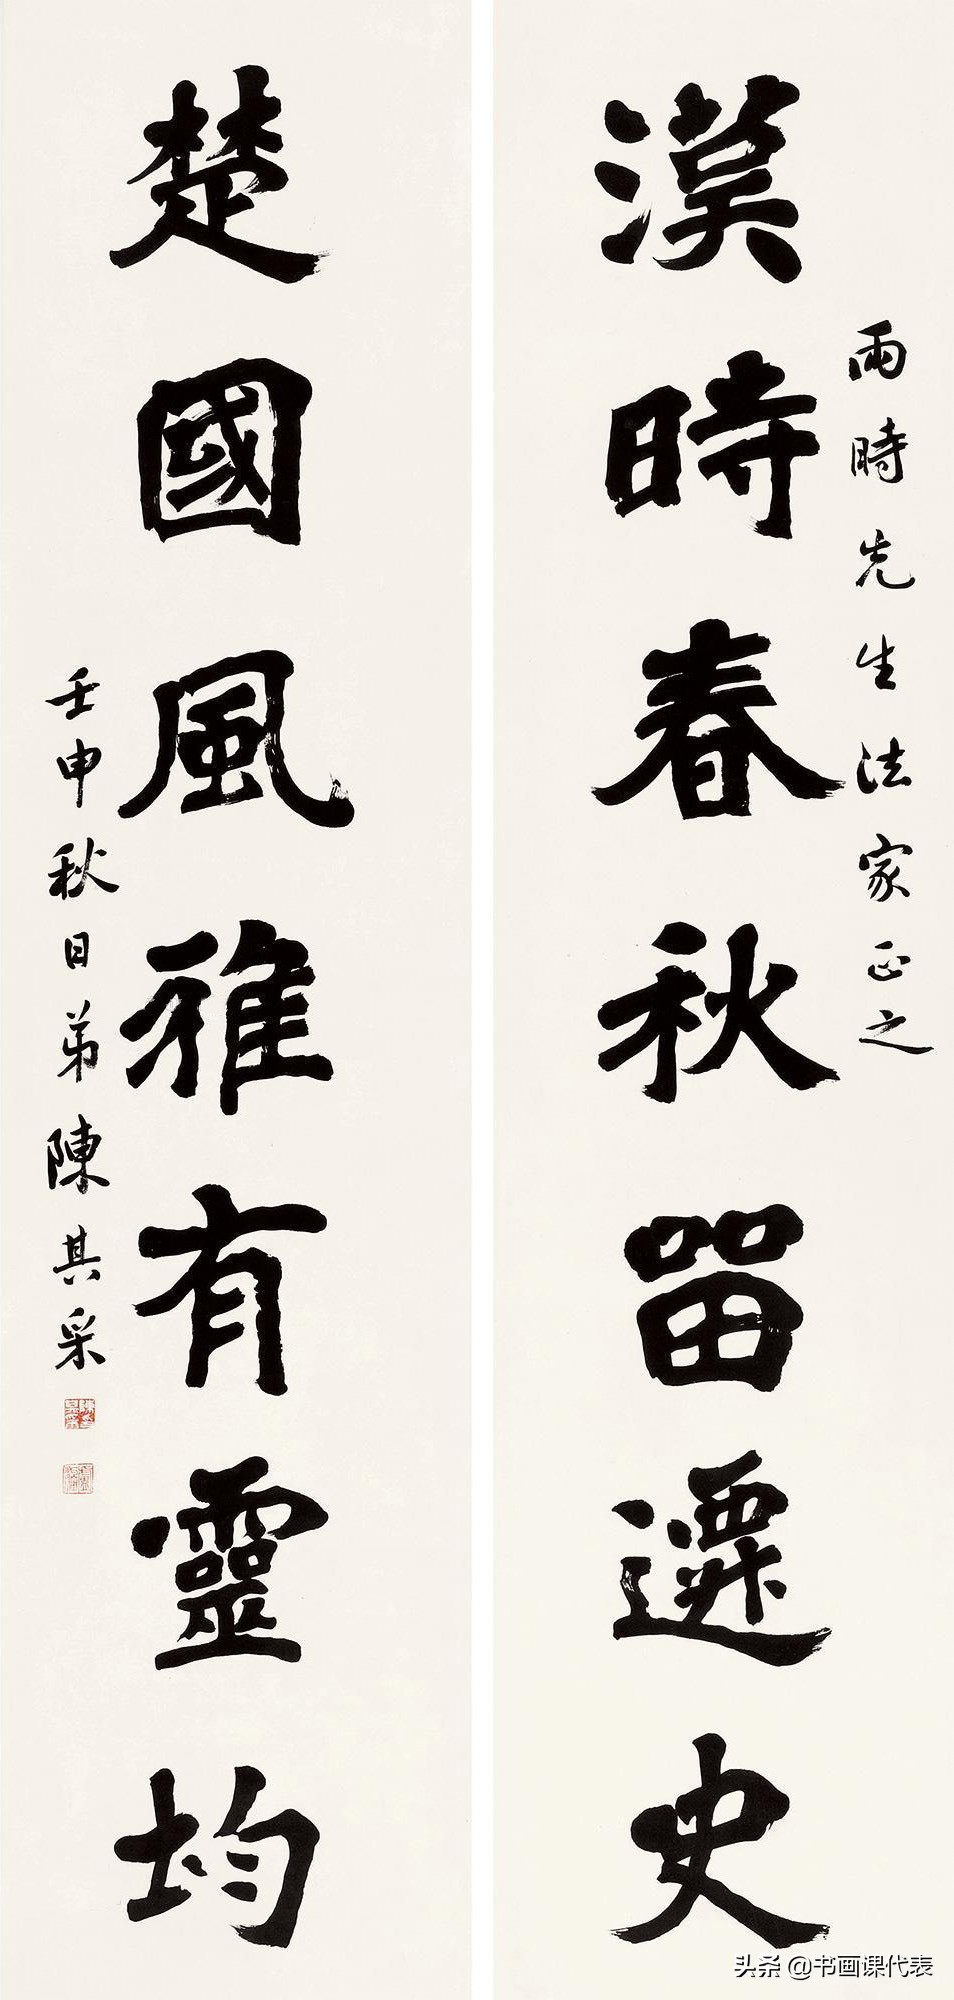 漢時春秋留遷史
雨時先生法家正之
楚國風雅有靈均
壬申秋日弟陳其采
头条 @书画课代表